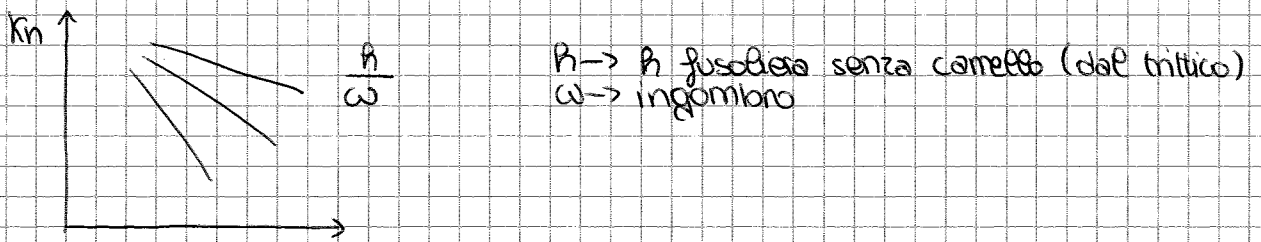 Kn
h/ω
h -> h fusoliera senza camello (dal trittico)
ω -> ingombro